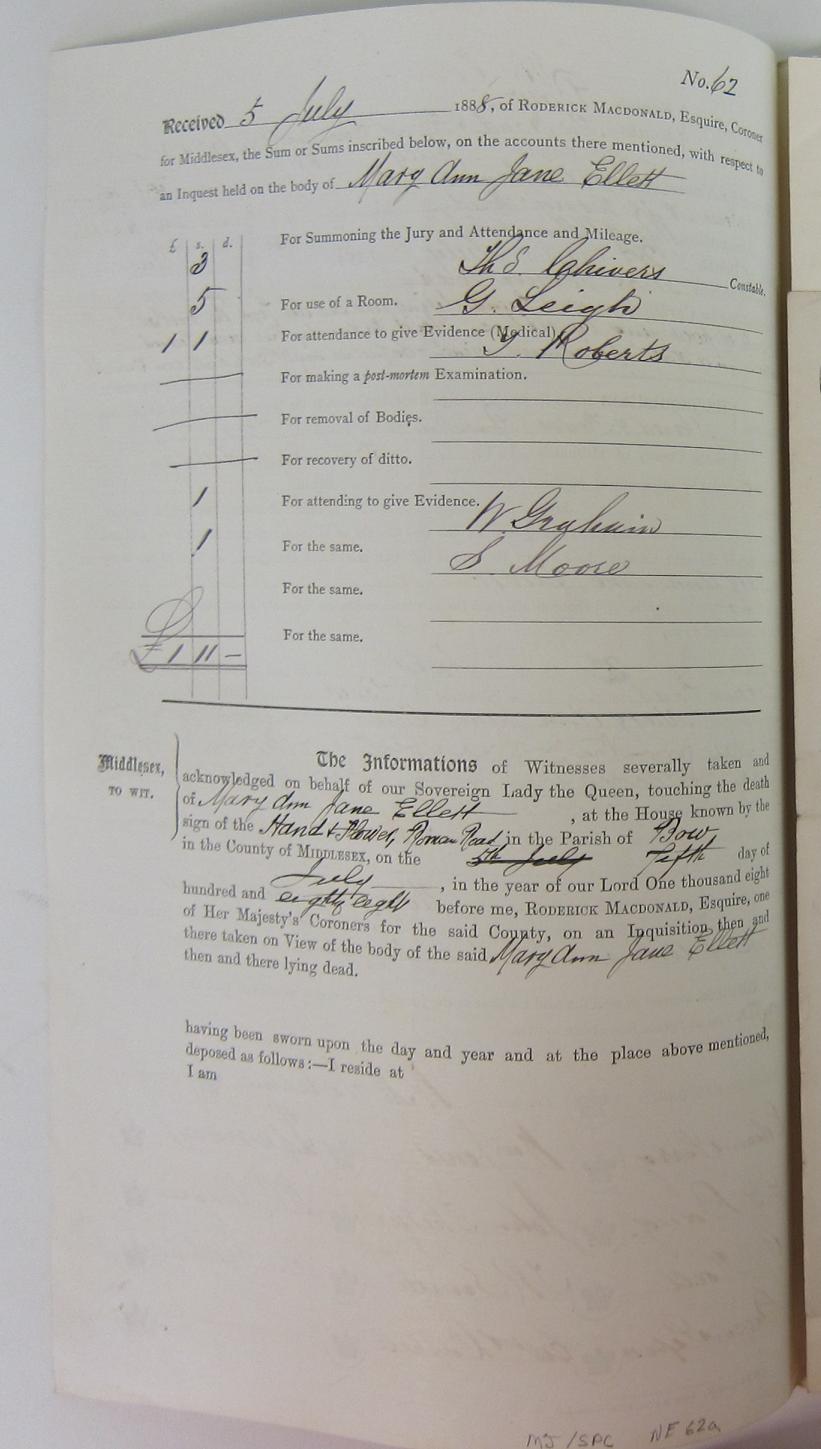 No. 62
Received 5 July 1888, of RODERICK MACDONALD, Esquire, Coroner
for Middlesex, the Sum or Sums inscribed below, on the accounts there mentioned, with respect to
an Inquest held on the body of Mary Ann Jane Ellett
£ s. d.
For Summoning the Jury and Attendance and Mileage.
3 Th S. Chivers Constable.
5 For use of a Room. G. Leigh
1 1 For attendance to give Evidence (Medical) Roberts
For making a post-mortem Examination.
For removal of Bodies.
For recovery of ditto.
1 For attending to give Evidence. W. Graham
1 For the same. S. Moose
For the same.
For the same.
£ 1 11 -
Middlesex, TO WIT.
The Informations of Witnesses severally taken and
acknowledged on behalf of our Sovereign Lady the Queen, touching the death
of Mary Ann Jane Ellett, at the House known by the
sign of the Hand & Flower, Roman Road in the Parish of Bow
in the County of MIDDLESEX, on the 5th July Fifth day of
July, in the year of our Lord One thousand eight
hundred and eighty eight before me, RODERICK MACDONALD, Esquire, one
of Her Majesty's Coroners for the said County, on an Inquisition then and
there taken on View of the body of the said Mary Ann Jane Ellett
then and there lying dead.
having been sworn upon the day and year and at the place above mentioned,
deposed as follows:—I reside at
I am
MJ/SPC NE 62a